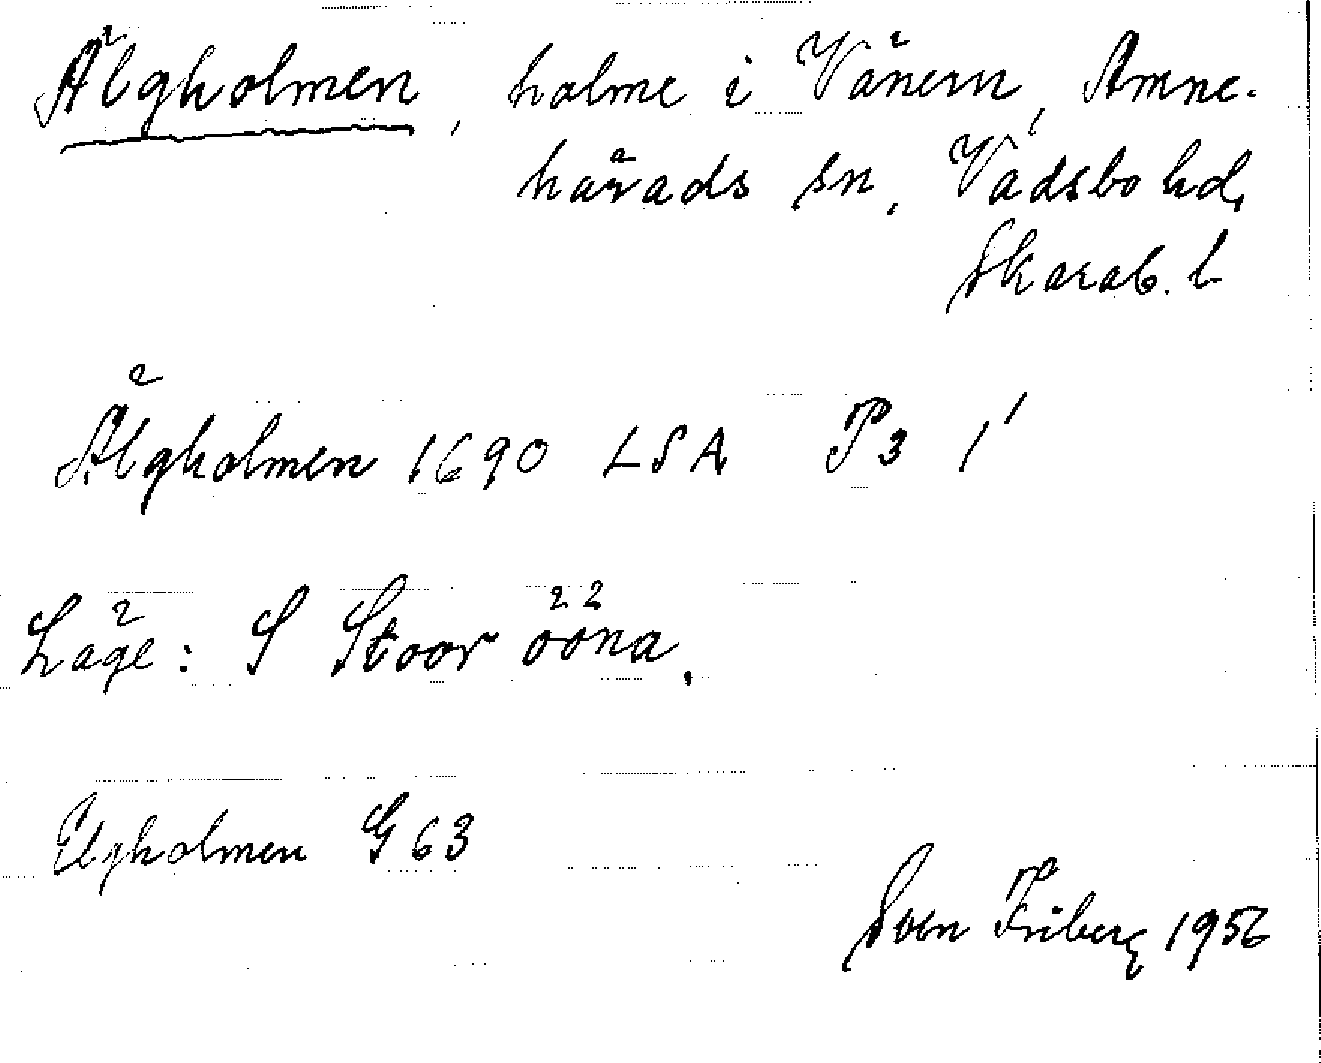 Älgholmen, holme i Vänern, Amne-
härads sn, Vadsbo hd,
Skarab. l
Älgholmen 1690 LSA P3 1'
Läge: S Stoor ööna.
Elgholmen G 63
Sven Friberg 1956